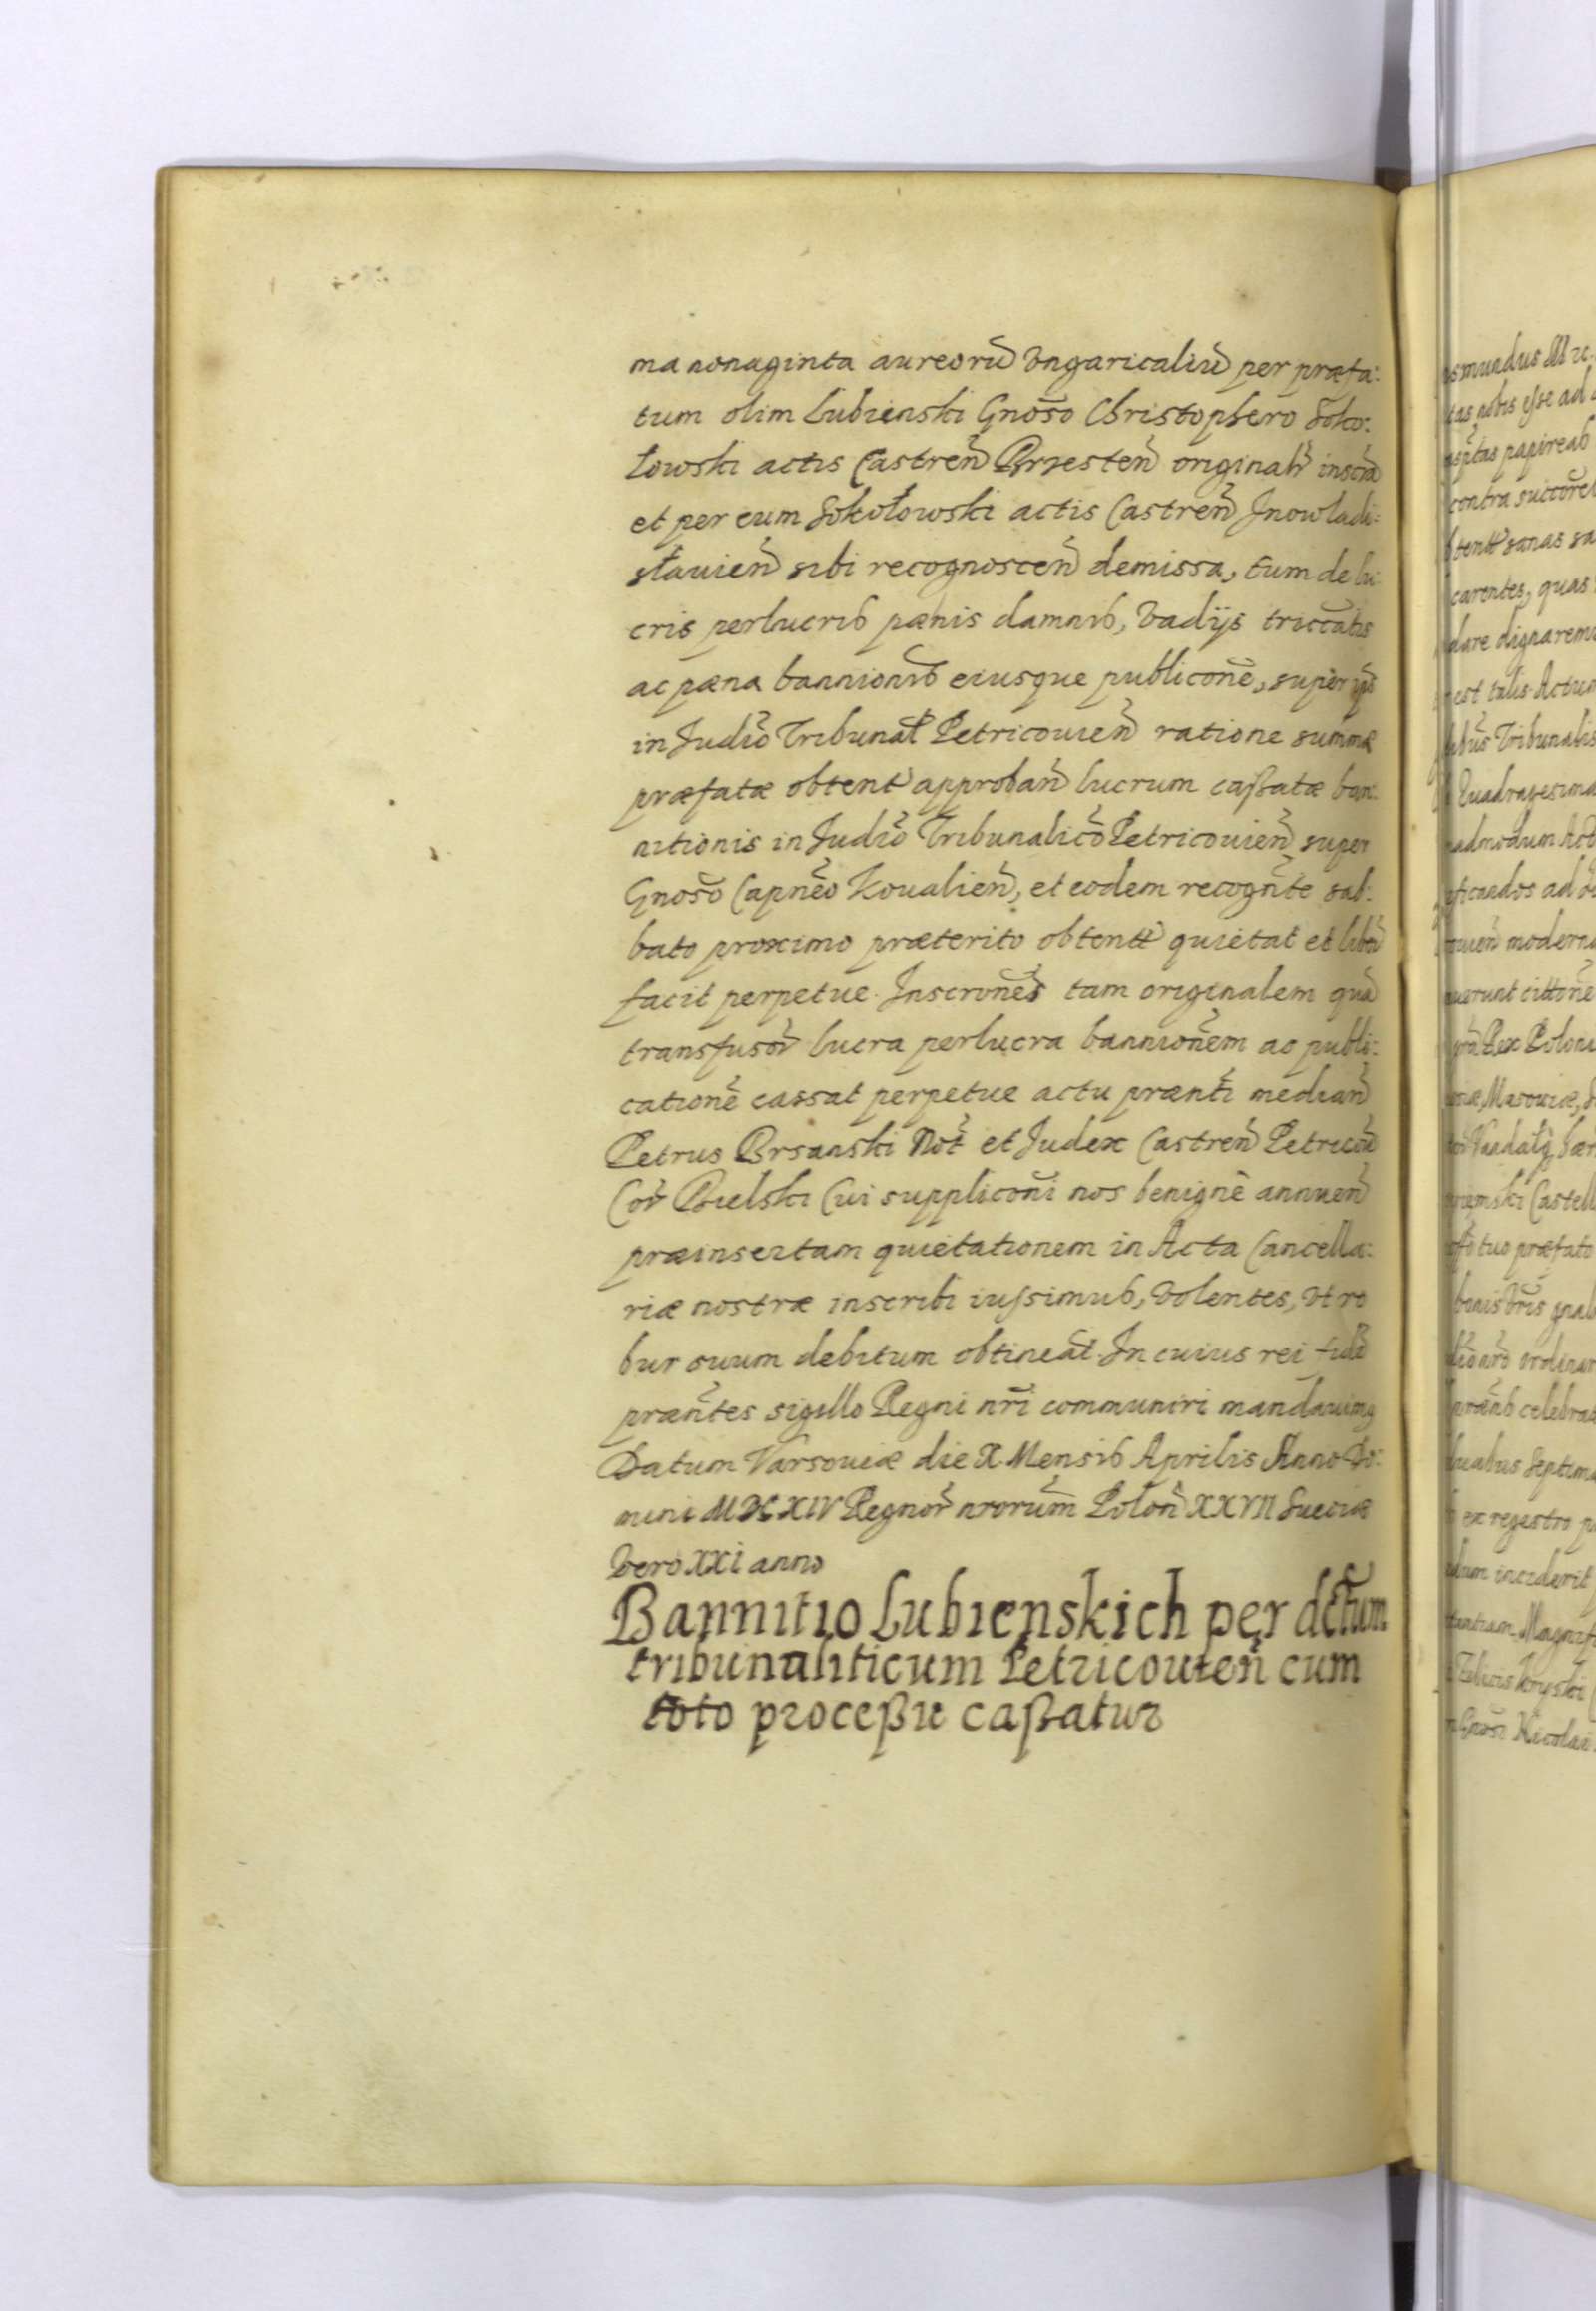 ma nonaginta aureorũ Vngaricaliũ per præfa:
tum olim Lubienski Gnõso Christophero Soko:
łowski actis Castreñ Brzesteñ originalr inscrã
et per eum Sokołowski actis Castreñ Jnowladi:
sławieñ sibi recognosceñ demissa, tum de lu:
cris perlucris pænis damnis, Vadijs triccatis
ac pæna bannionis eiusque publicoñe, super
in Judio Tribunal Petricouieñ ratione summæ
præfatæ obtent approbañ lucrum caßatæ ban:
nitionis in Judio Tribunalico Petricouieñ super
Gnõso Capneo Koualieñ, et eodem recognte sab:
bato proximo præterito obtentt quietat et liberũ
facit perpetue. Inscroñes tam originalem quã
transfusor lucra perlucra bannioñem ac publi:
catione cassat perpetue actu prænti mediañ
Petrus Brsanski Not et Judex Castreñ Petricoũ
Cor Bielski Cui supplicoñi nos benignè annueñ
præinsertam quietationem in Acta Cancella:
riæ nostræ inscribi iussimus, Volentes, Vt ro
bur suum debitum obtineat. In cuius rei fidẽ
præntes sigillo Regni nri communiri mandauimq
Datum Varsouiæ die X Mensis Aprilis Anno Do:
mini MDCXIV Regnor nrorum Poloñ XXVII Sueciæ
Vero XXI anno
Bannitio Lubienskich per dctum
tribunaliticum Petricouieñ cum
toto proceßu caßatur
tas nobis esse ad
contra succore
carentes, quas
dare dignaremu
est talis Actum
Tribunalis
Quadragesima
moderno
Rex Poloni
Castell
tuo præfato
ordinar
celebrat
Septima
ex regestro
inciderit
Nicolai